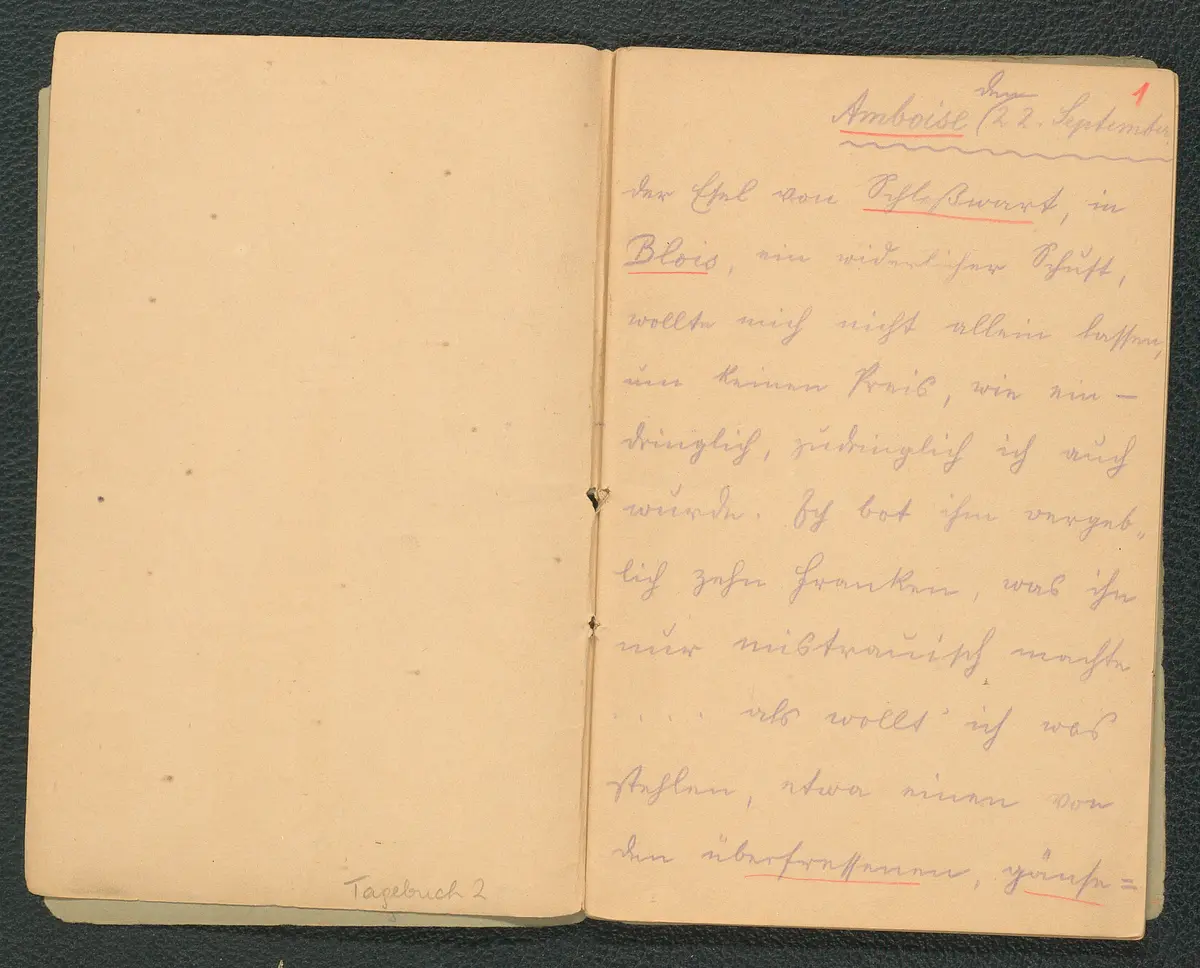 Tagebuch 2
1
Amboise den 22. September
der Esel von Schloßwart, in
Blois, ein widerlicher Schuft,
wollte mich nicht allein lassen,
um keinen Preis, wie ein-
dringlich, zudringlich ich auch
wurde. Ich bot ihm vergeb-
lich zehn Franken, was ihn
nur mistrauisch machte
.... als wollt' ich was
stehlen, etwa einen von
den überfressenen, gänse=